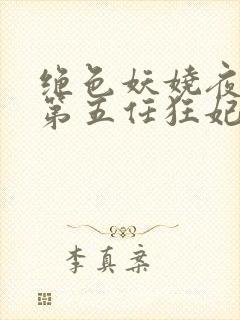 绝色妖娆夜
第五任狂妃
李真案